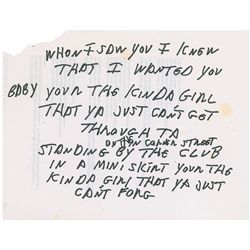 WHEN I SAW YOU I KNEW
THAT I WANTED YOU
BABY YOUR THE KINDA GIRL
THAT YA JUST CAN'T GET
THROUGH TA
OUT ON CORNER STREET
STANDING BY THE CLUB
IN A MINI SKIRT YOUR THE
KINDA GIRL THAT YA JUST
CAN'T FORG